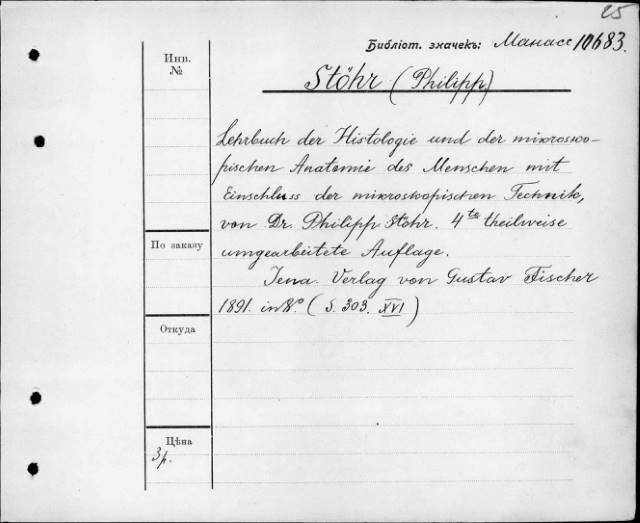 25
Библіот. значекъ: Манасс 10683.
Инв.
№
Stöhr (Philipp)
Lehrbuch der Histologie und der mikrosko-
pischen Anatomie des Menschen mit
Einschluss der mikroskopischen Technik,
von Dr. Philipp Stöhr. 4te theilweise
umgearbeitete Auflage.
По заказу
Jena. Verlag von Gustav Fischer
1891. in 8.° (S. 303. XVI)
Откуда
Цѣна
3 р.